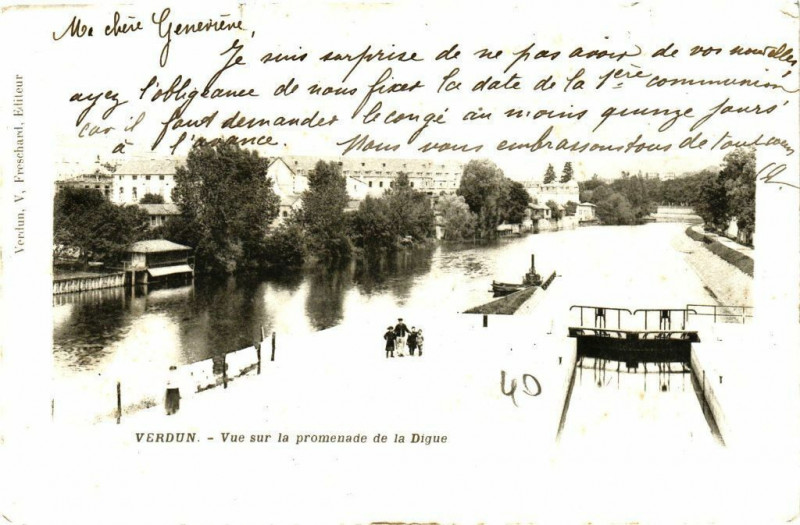 Ma chère Geneviève,
Je suis surprise de ne pas avoir de vos nouvelles
ayez l'obligeance de nous fixer la date de la 1ère communion
car il faut demander le congé au moins quinze jours
à l'avance. Nous vous embrassons tous de tout coeur
Verdun, V, Freschard, Editeur
40
VERDUN. - Vue sur la promenade de la Digue